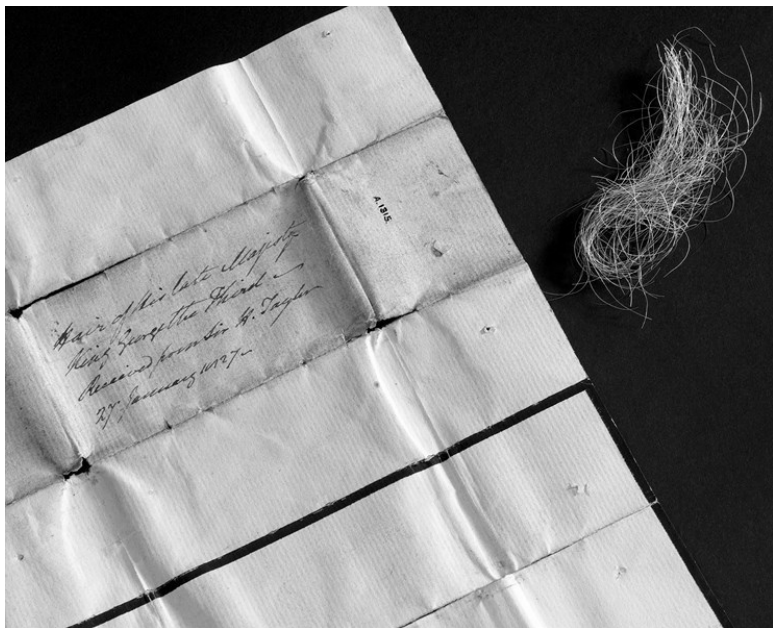 A.1315
"Hair of his late Majesty
King George the Third –
Received from Sir H. Taylor
27 January 1827 –